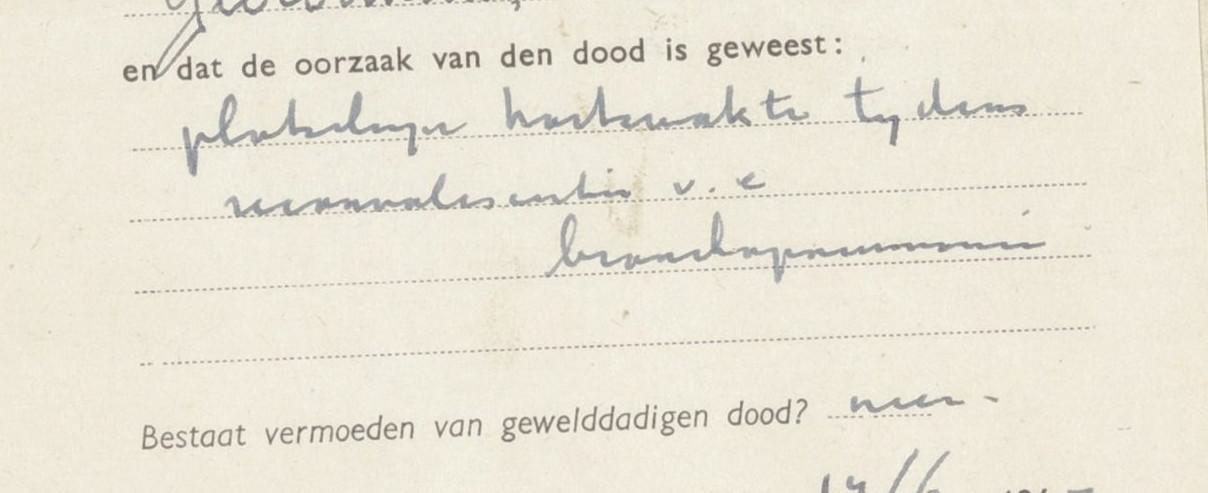 en dat de oorzaak van den dood is geweest:
plotselinge hartzwakte tijdens
reconvalescentie v. e
bronchopneumonie
Bestaat vermoeden van gewelddadigen dood? neen -